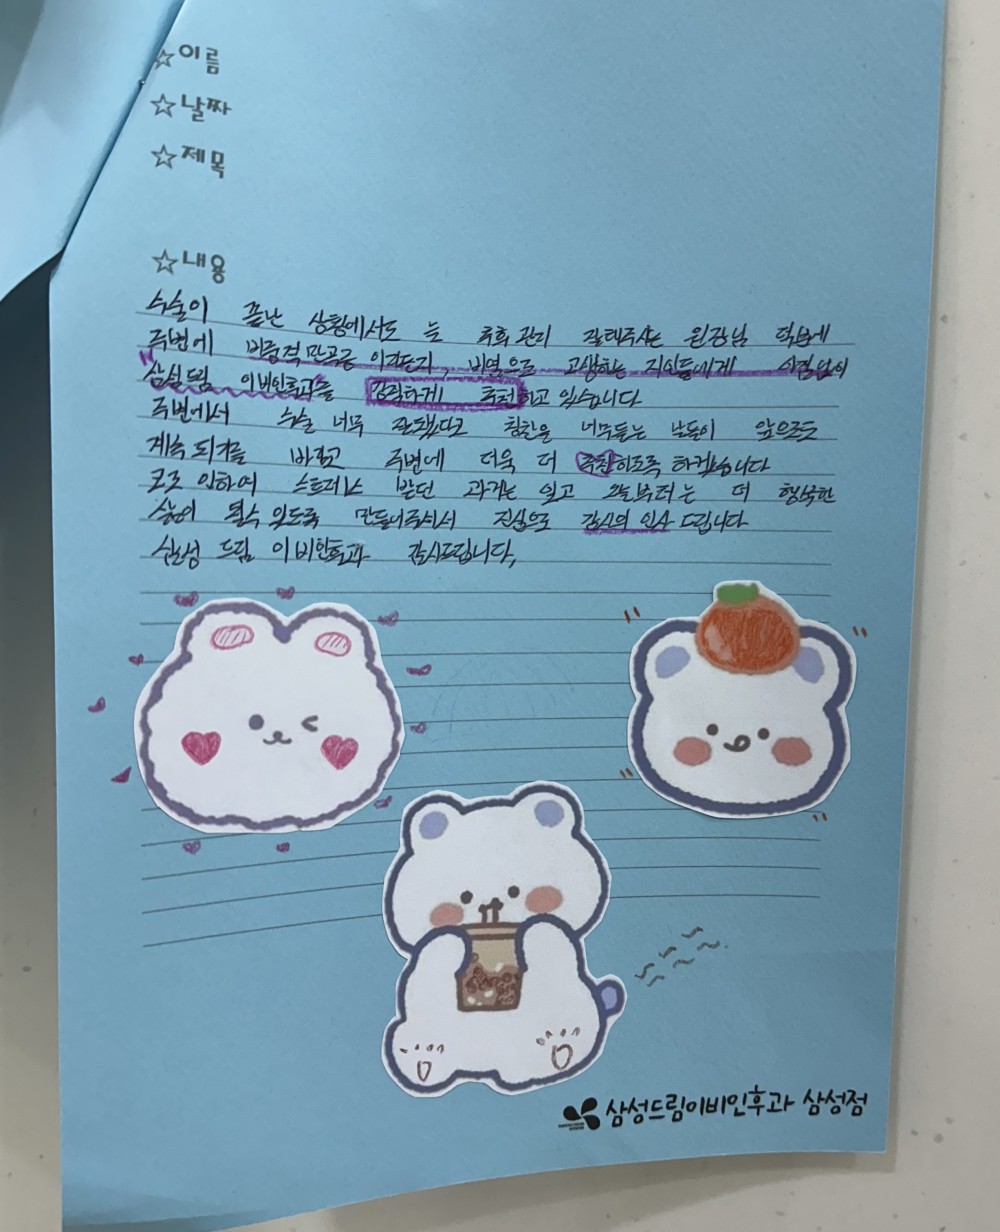 ☆이름
☆날짜
☆제목
☆내용
수술이 끝난 상황에서도 늘 추후 관리 잘해주시는 원장님 덕분에
주변에 비중격만곡증 이라든지, 비염으로 고생하는 지인들에게 서슴없이
"삼성드림 이비인후과"를 강력하게 추천하고 있습니다
주변에서 수술 너무 잘됐다고 칭찬을 너무듣는 날들이 앞으로도
계속 되기를 바라고 주변에 더욱 더 추천하도록 하겠습니다
코로 인하여 스트레스 받던 과거는 잊고 오늘부터는 더 행복한
삶이 될수 있도록 만들어주셔서 진심으로 감사의 인사 드립니다
삼성 드림 이비인후과 감사드립니다,
삼성드림이비인후과 삼성점